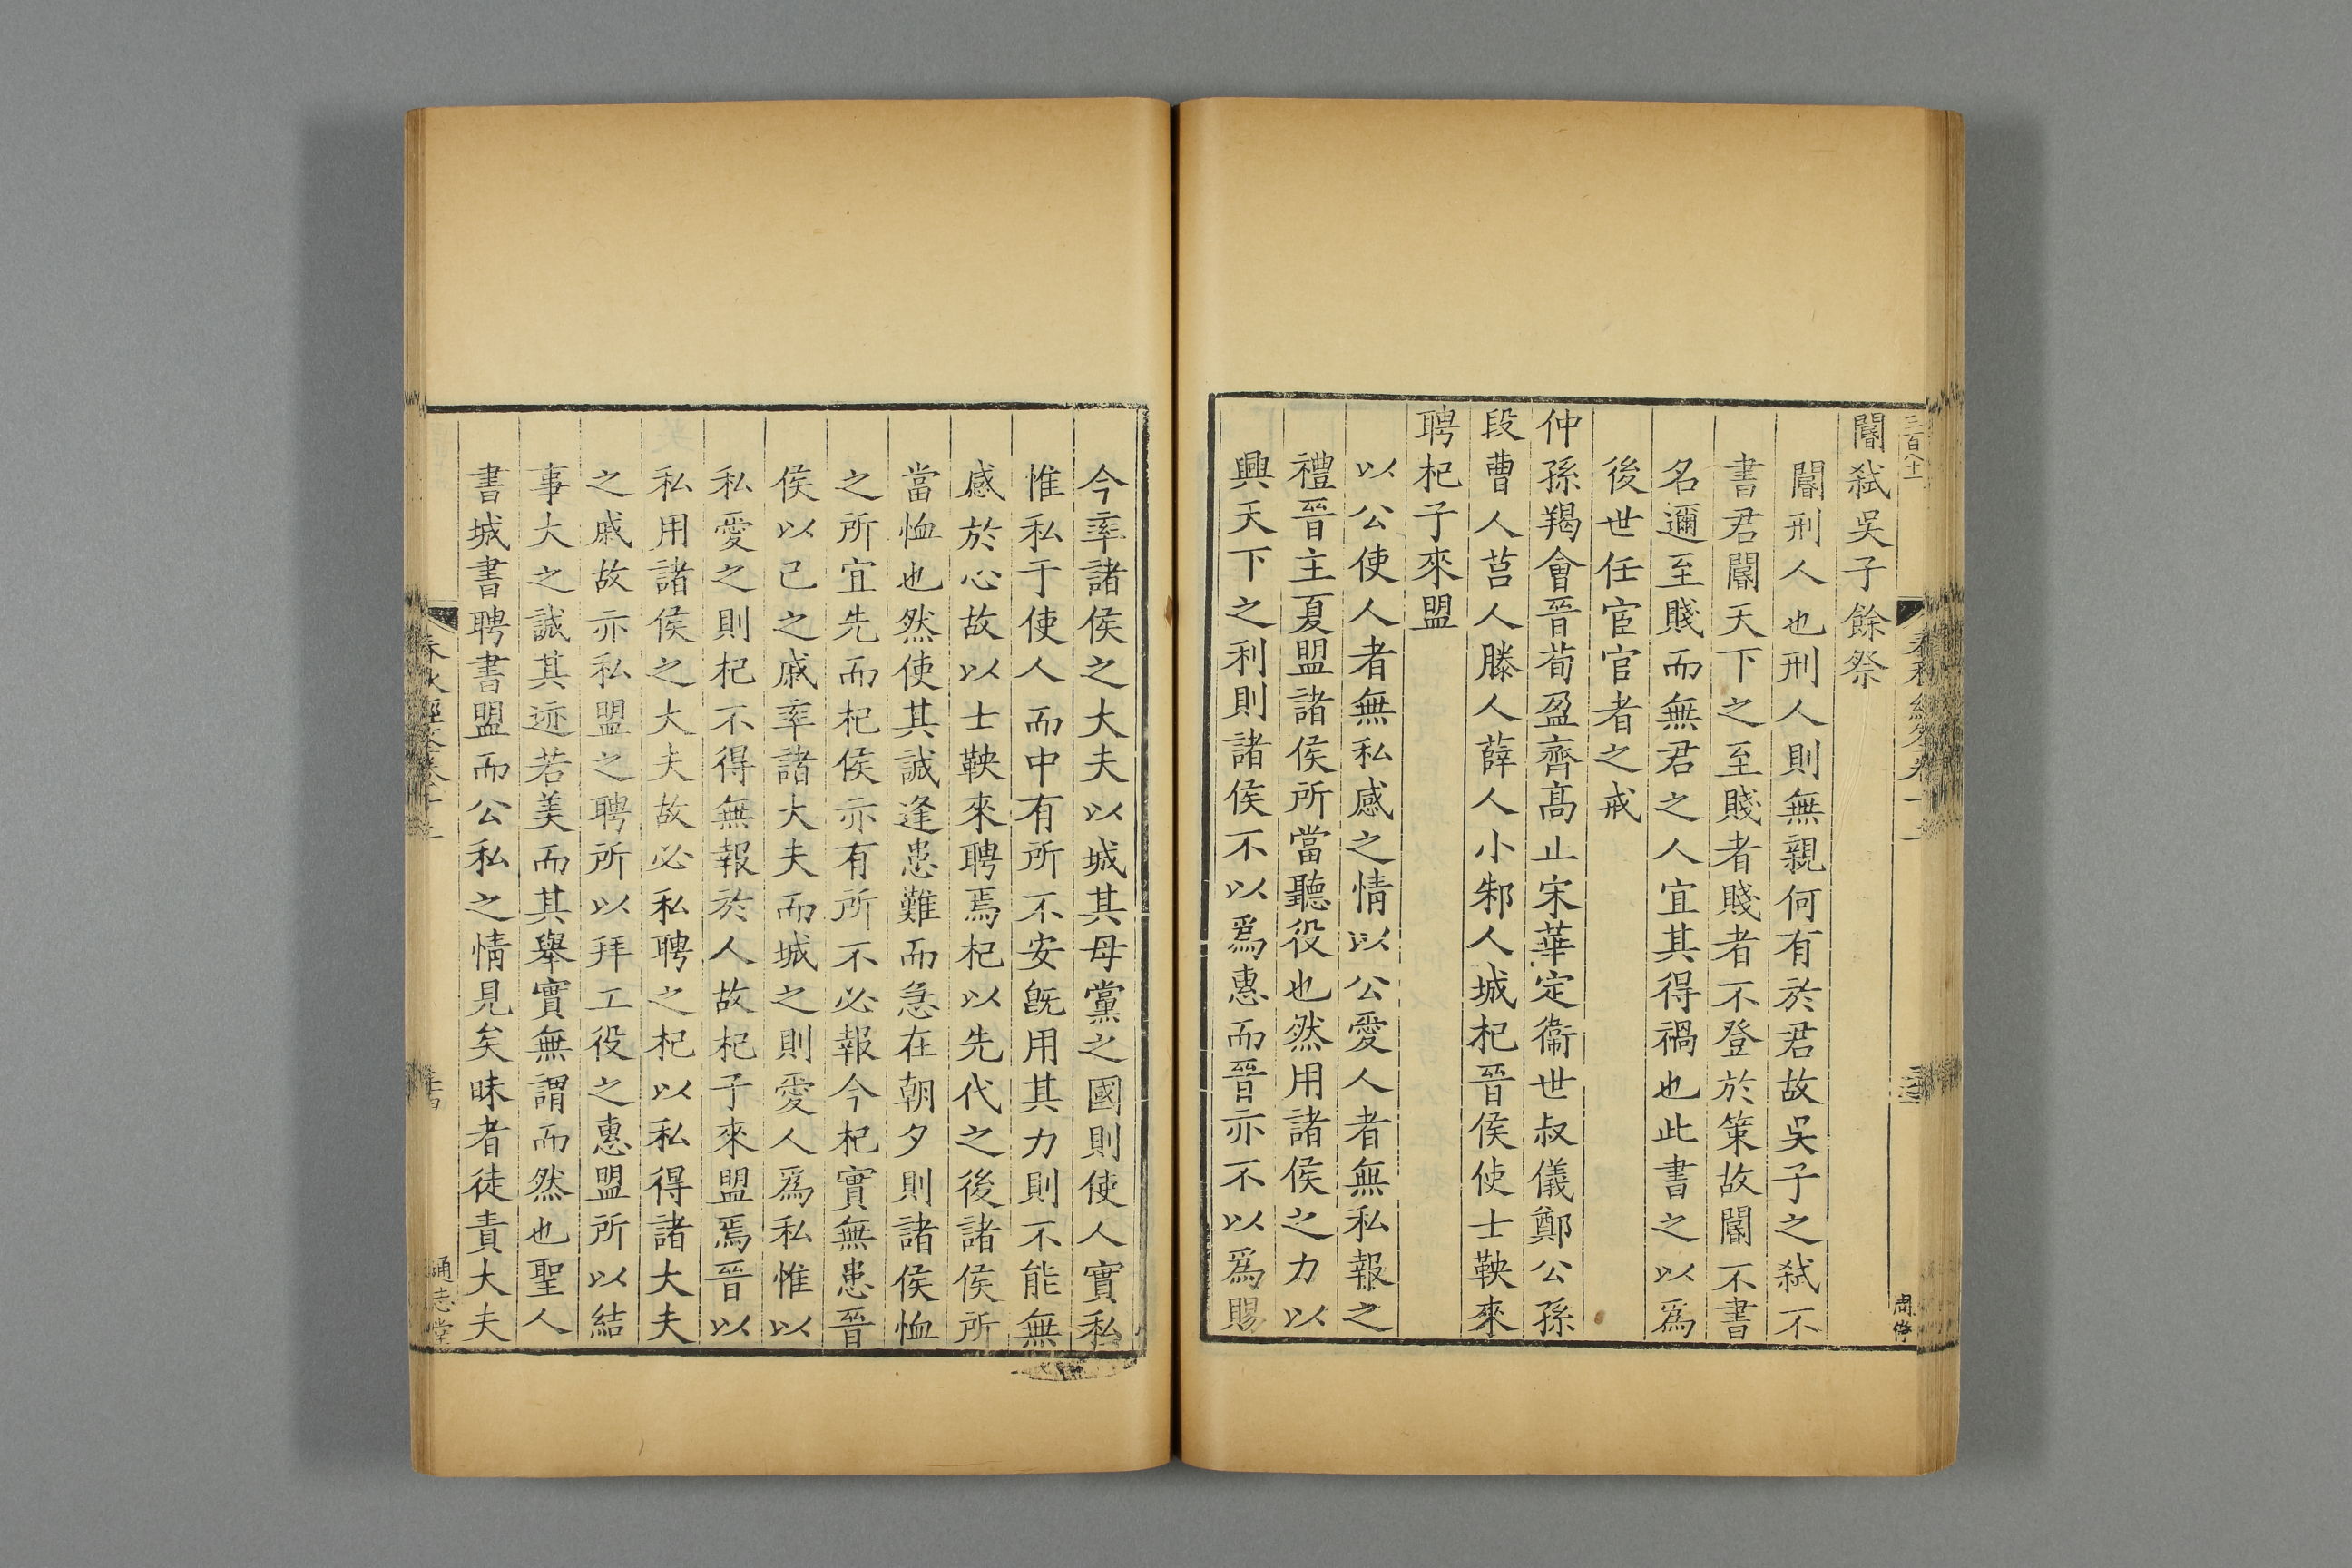 三百八十一
閽弑吳子餘祭
閽刑人也刑人則無親何有於君故吳子之弑不
書君閽天下之至賤者賤者不登於策故閽不書
名邇至賤而無君之人宜其得禍也此書之以爲
後世任宦官者之戒
仲孫羯會晉荀盈齊高止宋華定衞世叔儀鄭公孫
段曹人莒人滕人薛人小邾人城杞晉侯使士鞅來
聘杞子來盟
以公使人者無私感之情以公愛人者無私報之
禮晉主夏盟諸侯所當聽役也然用諸侯之力以
興天下之利則諸侯不以爲惠而晉亦不以爲賜
今率諸侯之大夫以城其母黨之國則使人實私
惟私于使人而中有所不安旣用其力則不能無
感於心故以士鞅來聘焉杞以先代之後諸侯所
當恤也然使其誠逢患難而急在朝夕則諸侯恤
之所宜先而杞侯亦有所不必報今杞實無患晉
侯以己之戚率諸大夫而城之則愛人爲私惟以
私愛之則杞不得無報於人故杞子來盟焉晉以
私用諸侯之大夫故必私聘之杞以私得諸大夫
之戚故亦私盟之聘所以拜工役之惠盟所以結
事大之誠其迹若美而其舉實無謂而然也聖人
書城書聘書盟而公私之情見矣昧者徒責大夫
通志堂